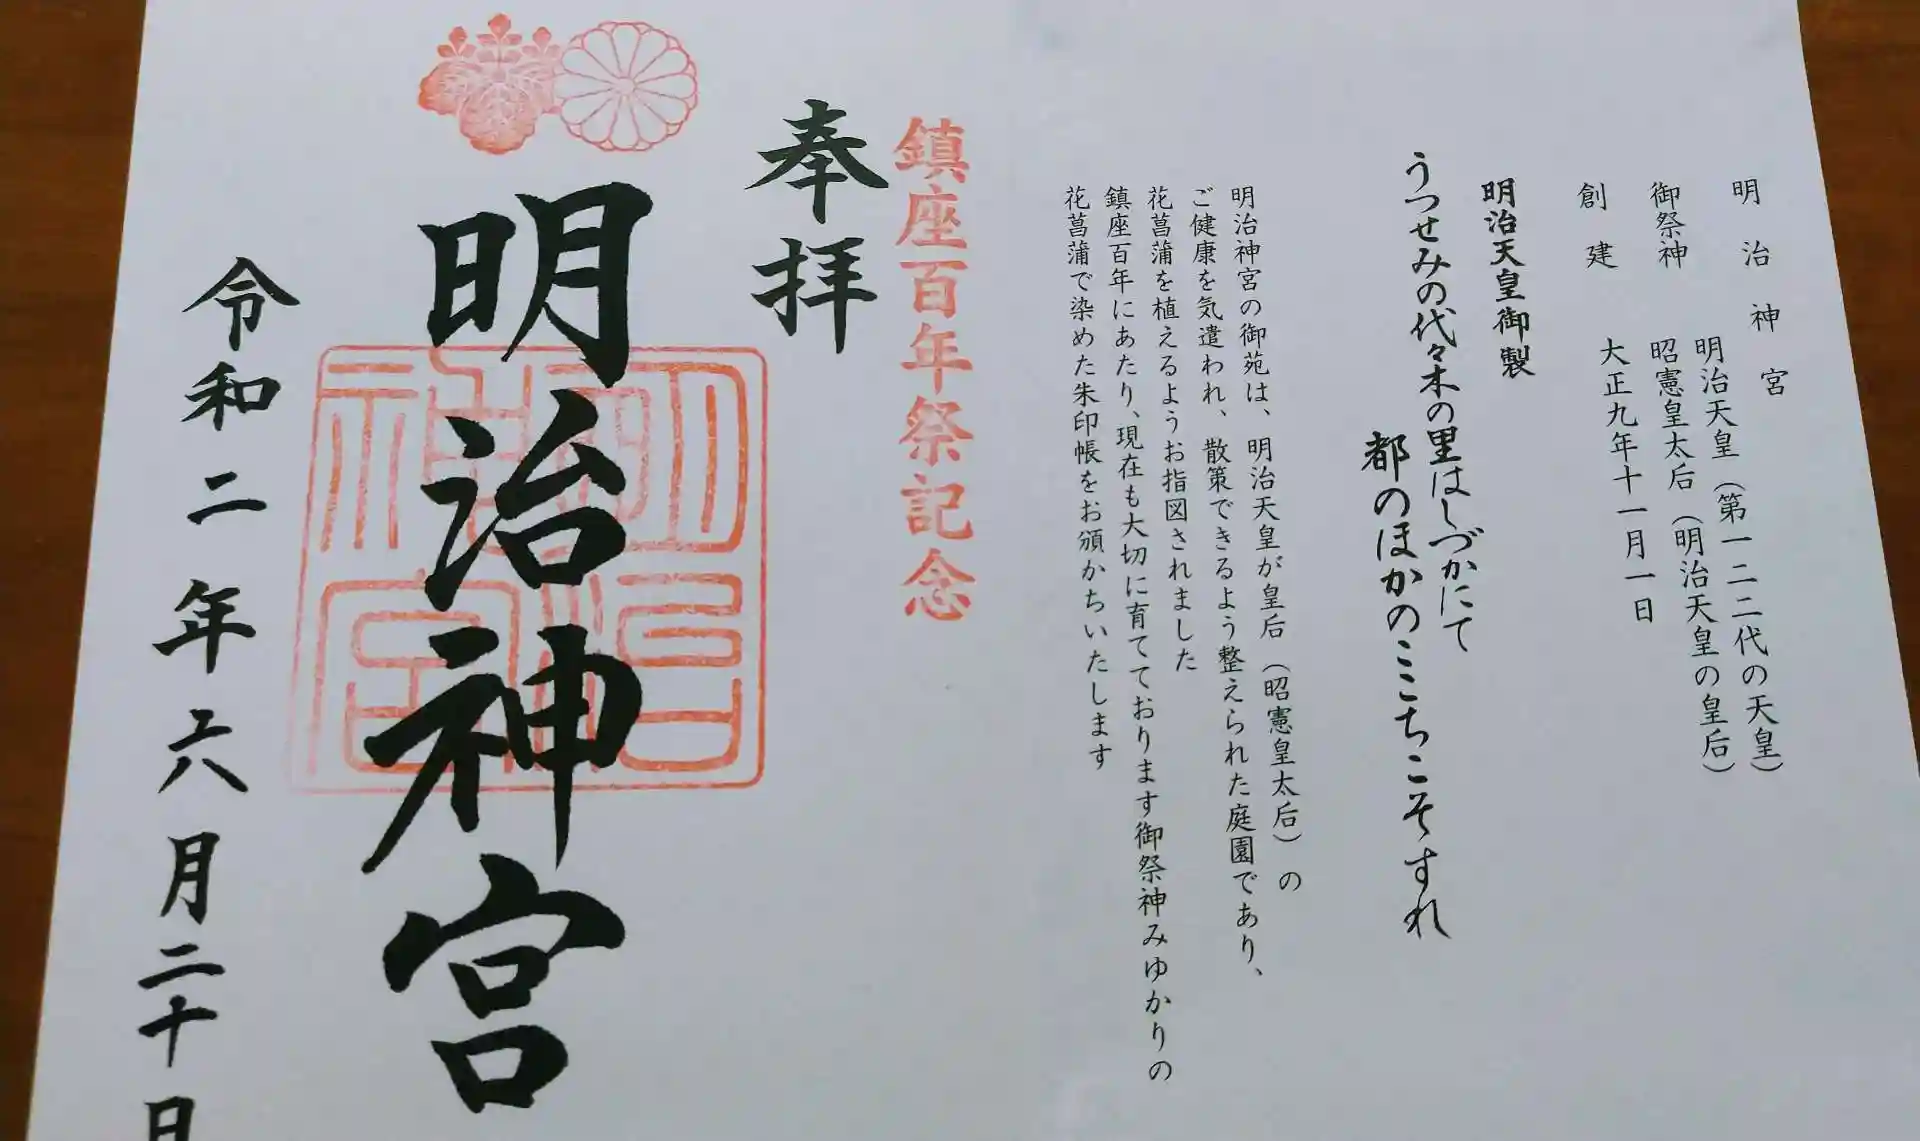 明治神宮
御祭神 明治天皇(第一二二代の天皇)
昭憲皇太后(明治天皇の皇后)
創建 大正九年十一月一日
明治天皇御製
うつせみの代々木の里はしづかにて
都のほかのここちこそすれ
明治神宮の御苑は、明治天皇が皇后(昭憲皇太后)の
ご健康を気遣われ、散策できるよう整えられた庭園であり、
花菖蒲を植えるようお指図されました
鎮座百年にあたり、現在も大切に育てております御祭神みゆかりの
花菖蒲で染めた朱印帳をお頒かちいたします
鎮座百年祭記念
奉拝
明治神宮
明治神宮
令和二年六月二十日